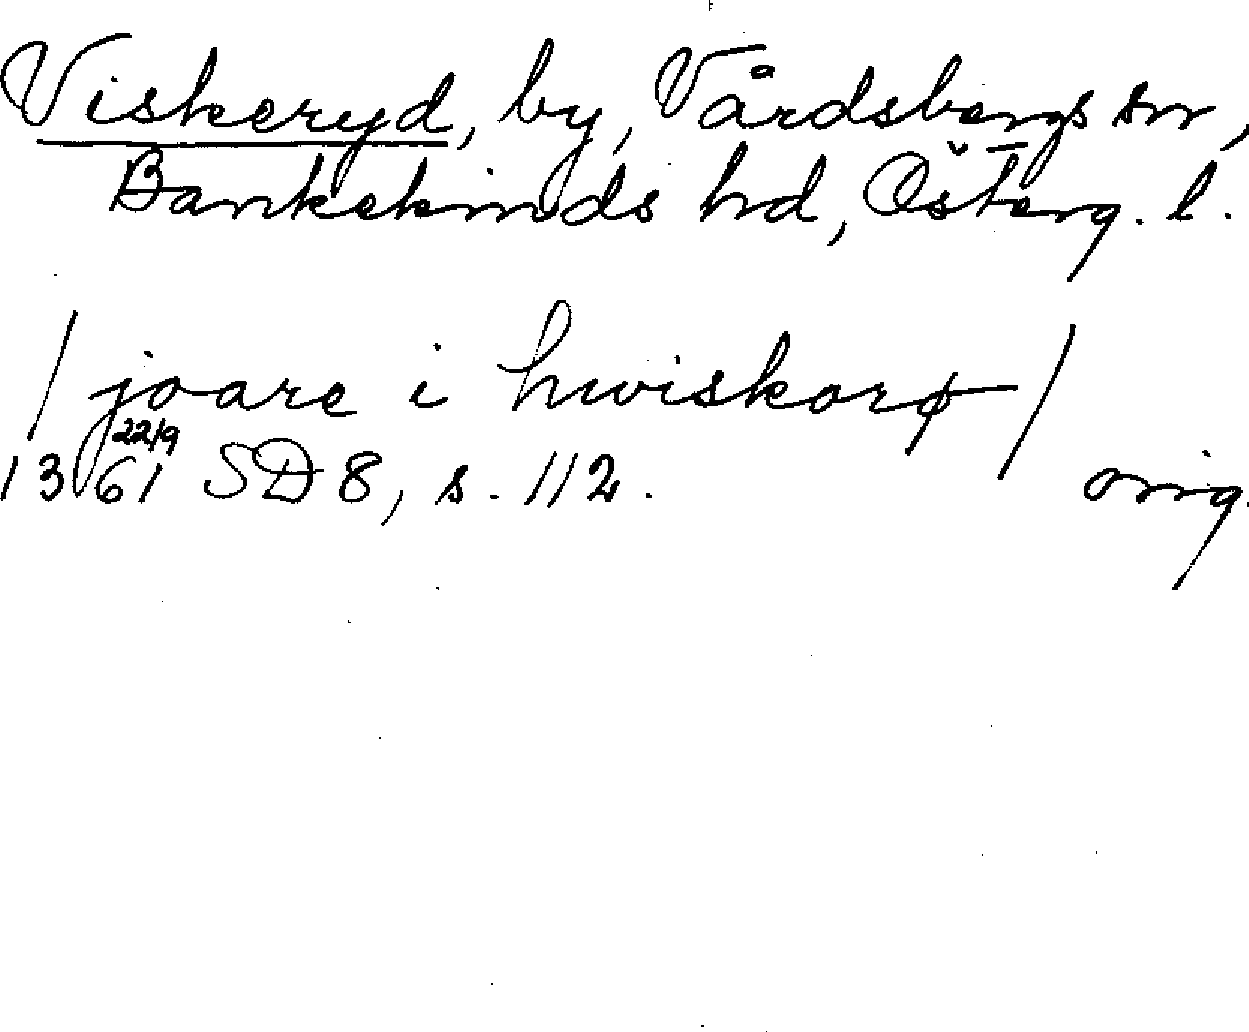 Viskeryd, by, Vårdsbergs sn,
Bankekinds hd, Österg. l.
/ joare i hwiskorø /
1361 22/9 SD 8, s. 112. orig.